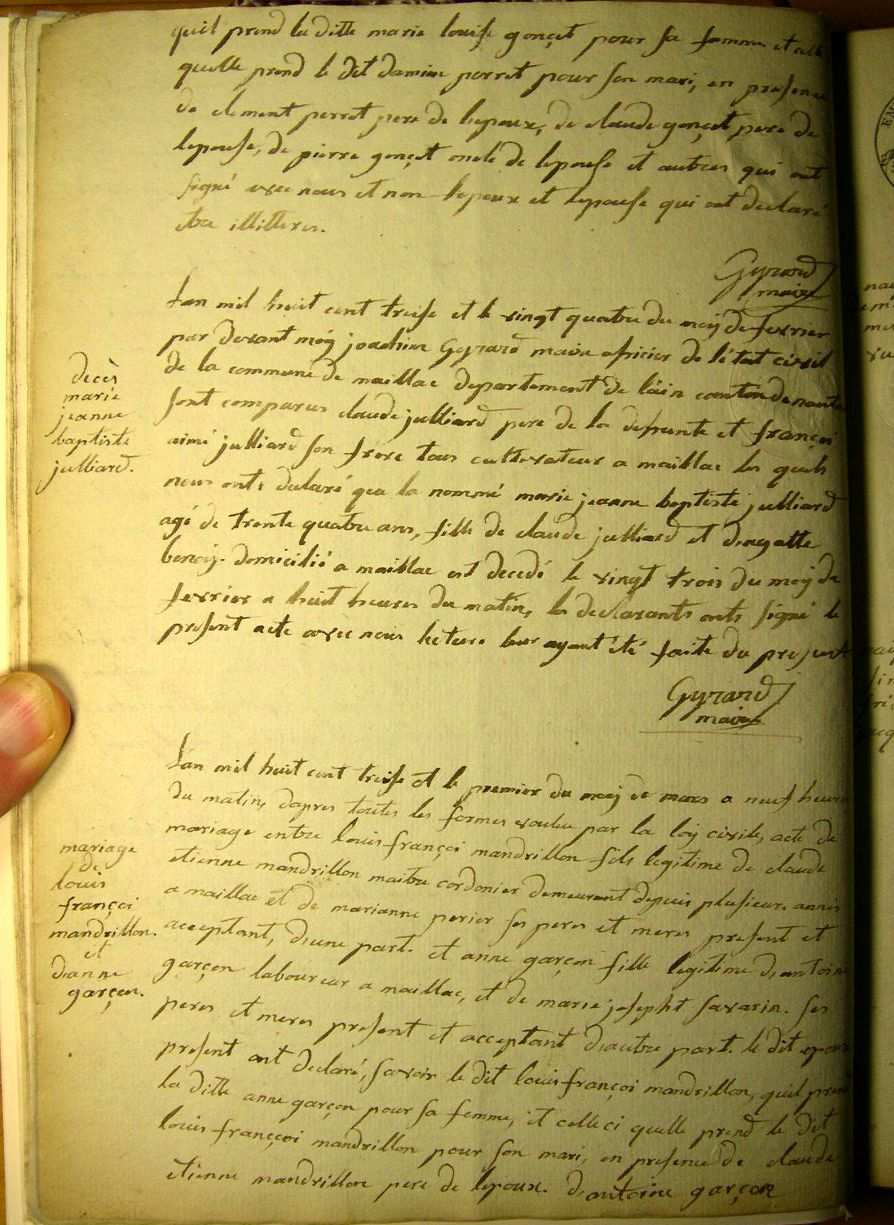 quil prend la ditte marie louise gonçet pour sa femme et celle
quelle prend le dit damien perret pour son mari, en presence
de clement perret pere de lepoux, de claude gonçet pere de
lepouse, de pierre gonçet oncle de lepouse et autres qui ont
signé avec nous et non lepoux et lepouse qui ont declaré
etre illitteres.
Gyrard
maire
decès
marie
jeanne
baptiste
julliard.
lan mil huit cent treise et le vingt quatre du moy de fevrier
par devant moy joachim Gyrard maire oficier de l'état civil
de la commune de maillac departement de l'ain canton de
sont comparus claude julliard pere de la defunte et françoi
aimé julliard son frere tous cultivateur a maillac les quels
nous onts declaré que la nommé marie jeanne baptiste julliard
agé de trente quatre ans, fille de claude julliard et
benoiy. domicilié a maillac est decedé le vingt trois du moy de
fevrier a huit heures du matin, les declarants onts signé le
present acte avec nous lecture leur ayant été faite du present
Gyrard
maire
mariage
de
louis
françoi
mandrillon.
et
dianne
garçon.
lan mil huit cent treise et le premier du moy de mars a neuf heures
du matin, dapres toutes les formes voulue par la loy civile, acte de
mariage entre louis françoi mandrillon fils legitime de claude
etienne mandrillon maitre cordonier demeurant depuis plusieurs annés
a maillac et de marianne perier ses peres et meres present et
acceptant, d'une part. et anne garçon fille legitime d'antoine
garçon laboureur a maillac, et de marie josepht savarin. ses
peres et meres present et acceptant d'autre part. le dit epoux
present ont declaré, savoir le dit louis françoi mandrillon, quil prend
la ditte anne garçon pour sa femme, et celle ci quelle prend le dit
louis françoi mandrillon pour son mari, en presence de claude
etienne mandrillon pere de lepoux. d'antoine garçon